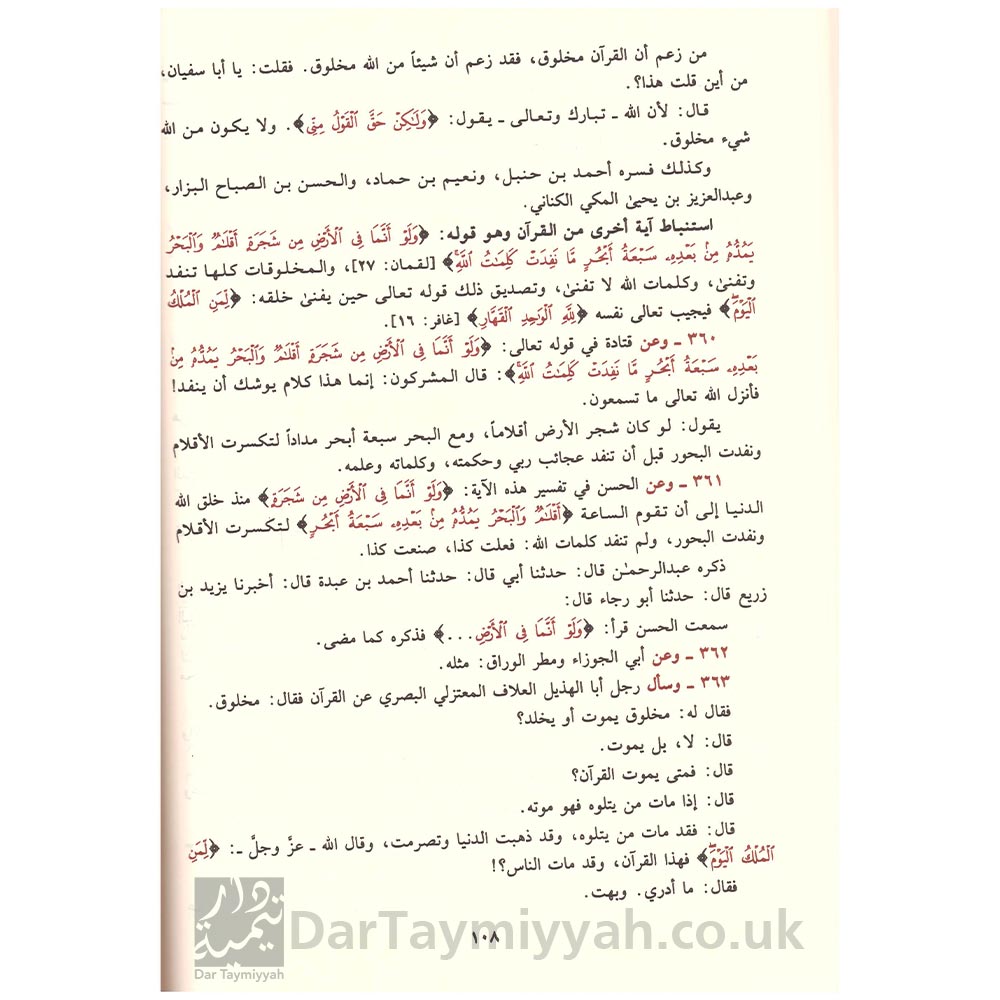 من زعم أن القرآن مخلوق، فقد زعم أن شيئاً من الله مخلوق. فقلت: يا أبا سفيان،
من أين قلت هذا؟.
قال: لأن الله ـ تبارك وتعالى ـ يقول: ﴿وَلَٰكِنْ حَقَّ الْقَوْلُ مِنِّي﴾. ولا يكون من الله
شيء مخلوق.
وكذلك فسره أحمد بن حنبل، ونعيم بن حماد، والحسن بن الصباح البزار،
وعبدالعزيز بن يحيىٰ المكي الكناني.
استنباط آية أخرى من القرآن وهو قوله: ﴿وَلَوْ أَنَّمَا فِي الْأَرْضِ مِن شَجَرَةٍ أَقْلَامٌ وَالْبَحْرُ
يَمُدُّهُ مِنْ بَعْدِهِ سَبْعَةُ أَبْحُرٍ مَّا نَفِدَتْ كَلِمَاتُ اللَّهِ﴾ [لقمان: ٢٧]، والمخلوقات كلها تنفد
وتفنىٰ، وكلمات الله لا تفنىٰ، وتصديق ذلك قوله تعالى حين يفنىٰ خلقه: ﴿لِّمَنِ الْمُلْكُ
الْيَوْمَ﴾ فيجيب تعالى نفسه ﴿لِلَّهِ الْوَاحِدِ الْقَهَّارِ﴾ [غافر: ١٦].
٣٦٠ ـ وعن قتادة في قوله تعالى: ﴿وَلَوْ أَنَّمَا فِي الْأَرْضِ مِن شَجَرَةٍ أَقْلَامٌ وَالْبَحْرُ يَمُدُّهُ مِنْ
بَعْدِهِ سَبْعَةُ أَبْحُرٍ مَّا نَفِدَتْ كَلِمَاتُ اللَّهِ﴾: قال المشركون: إنما هذا كلام يوشك أن ينفد!
فأنزل الله تعالى ما تسمعون.
يقول: لو كان شجر الأرض أقلاماً، ومع البحر سبعة أبحر مداداً لتكسرت الأقلام
ونفدت البحور قبل أن تنفد عجائب ربي وحكمته، وكلماته وعلمه.
٣٦١ ـ وعن الحسن في تفسير هذه الآية: ﴿وَلَوْ أَنَّمَا فِي الْأَرْضِ مِن شَجَرَةٍ﴾ منذ خلق الله
الدنيا إلى أن تقوم الساعة ﴿أَقْلَامٌ وَالْبَحْرُ يَمُدُّهُ مِنْ بَعْدِهِ سَبْعَةُ أَبْحُرٍ﴾ لتكسرت الأقلام
ونفدت البحور، ولم تنفد كلمات الله: فعلت كذا، صنعت كذا.
ذكره عبدالرحمٰن قال: حدثنا أبي قال: حدثنا أحمد بن عبدة قال: أخبرنا يزيد بن
زريع قال: حدثنا أبو رجاء قال:
سمعت الحسن قرأ: ﴿وَلَوْ أَنَّمَا فِي الْأَرْضِ...﴾ فذكره كما مضى.
٣٦٢ ـ وعن أبي الجوزاء ومطر الوراق: مثله.
٣٦٣ ـ وسأل رجل أبا الهذيل العلاف المعتزلي البصري عن القرآن فقال: مخلوق.
فقال له: مخلوق يموت أو يخلد؟
قال: لا، بل يموت.
قال: فمتى يموت القرآن؟
قال: إذا مات من يتلوه فهو موته.
قال: فقد مات من يتلوه، وقد ذهبت الدنيا وتصرمت، وقال الله ـ عزَّ وجلَّ ـ: ﴿لِّمَنِ
الْمُلْكُ الْيَوْمَ﴾ فهذا القرآن، وقد مات الناس؟!
فقال: ما أدري. وبهت.
١٠٨
دار تيمية
Dar Taymiyyah
DarTaymiyyah.co.uk